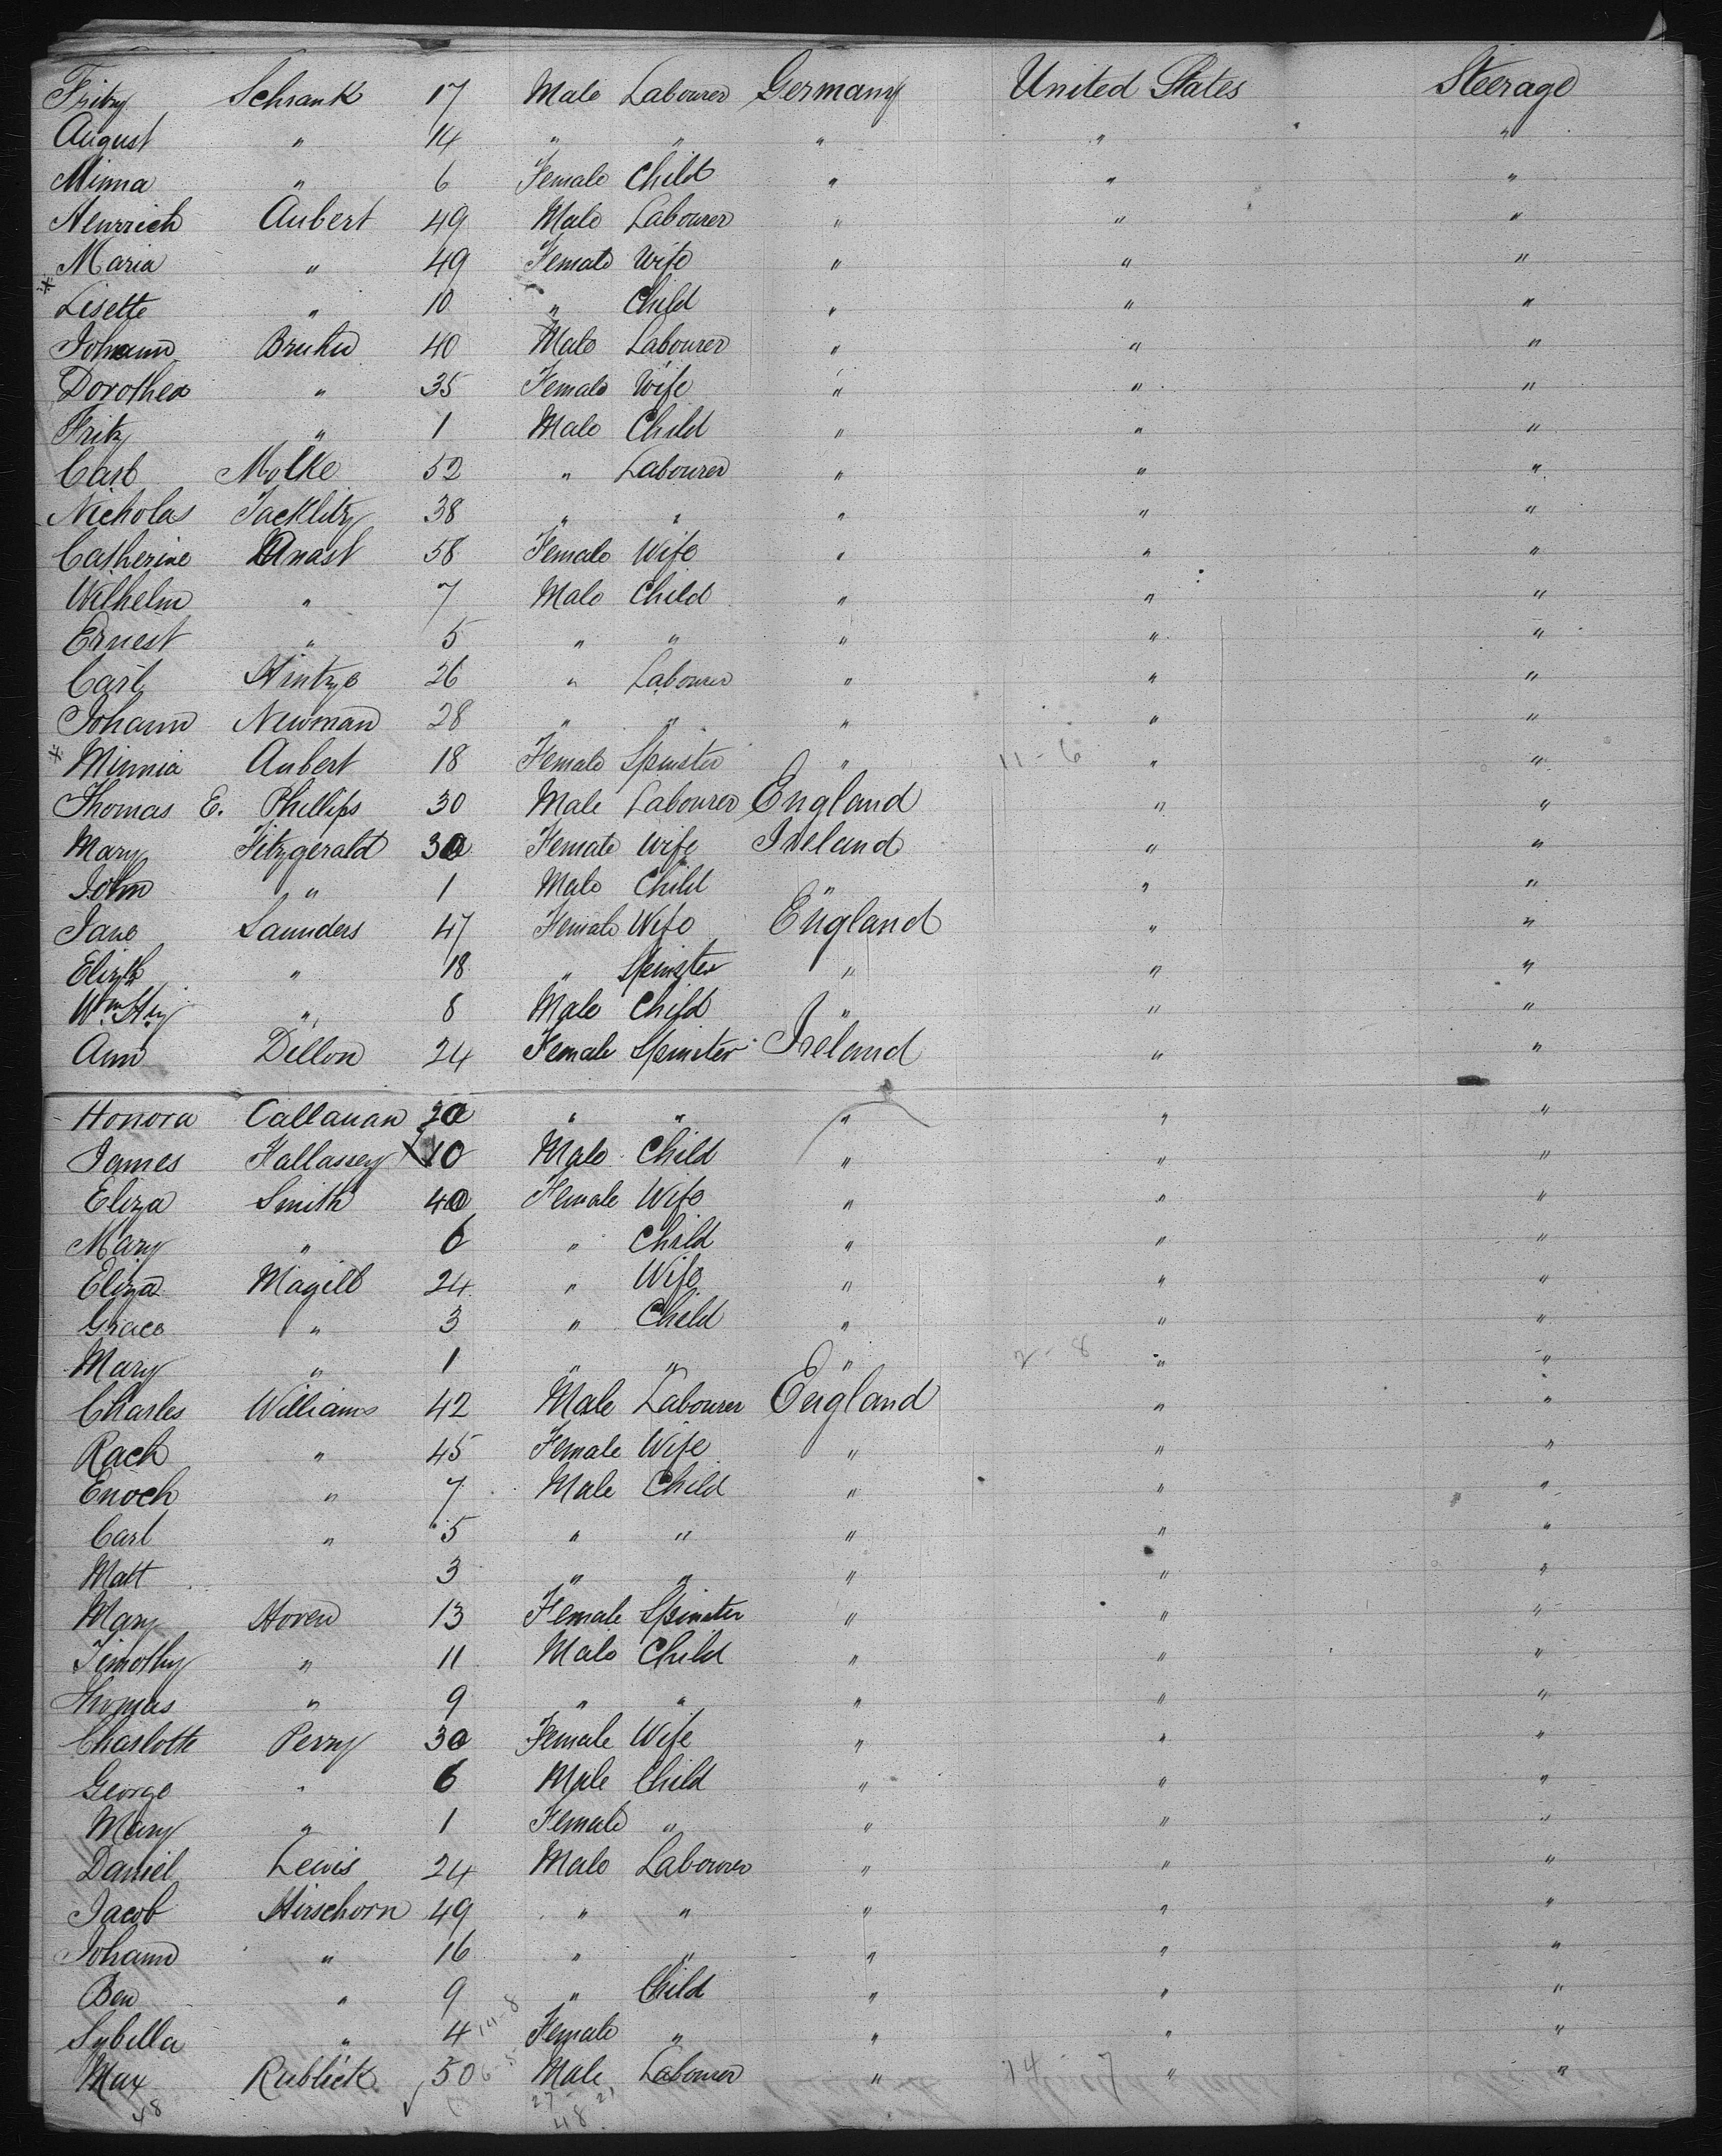 Fritz Schrank 17 Male Labourer Germany United States Steerage
August " 14 " " " " "
Minna " 6 Female Child " " "
Henrich Aubert 49 Male Labourer " " "
Maria " 49 Female Wife " " "
* Lisette " 10 " Child " " "
Johann Bruhn 40 Male Labourer " " "
Dorothea " 35 Female Wife " " "
Fritz " 1 Male Child " " "
Carl Molke 52 " Labourer " " "
Nicholas Jacklitz 38 " " " " "
Catherine Knast 58 Female Wife " " "
Wilhelm " 7 Male Child " " "
Ernest " 5 " " " " "
Carl Hintze 26 " Labourer " " "
Johann Newman 28 " " " " "
* Minnia Aubert 18 Female Spinster " 11-6 " "
Thomas E. Phillips 30 Male Labourer England " "
Mary Fitzgerald 30 Female Wife Ireland " "
John " 1 Male Child " " "
Jane Saunders 47 Female Wife England " "
Elizth " 18 " Spinster " " "
Wm. Hy " 8 Male Child " " "
Ann Dillon 24 Female Spinster Ireland " "
Honora Callanan 20 " " " " "
James Fallassey 10 Male Child " " "
Eliza Smith 40 Female Wife " " "
Mary " 6 " Child " " "
Eliza Magill 24 " Wife " " "
Grace " 3 " Child " " "
Mary " 1 " " " 2-8 " "
Charles Williams 42 Male Labourer England " "
Rach " 45 Female Wife " " "
Enoch " 7 Male Child " " "
Carl " 5 " " " " "
Matt 3 " " " " "
Mary Horen 13 Female Spinster " " "
Timothy " 11 Male Child " " "
Thomas " 9 " " " " "
Charlotte Perry 30 Female Wife " " "
George " 6 Male Child " " "
Mary " 1 Female " " " "
Daniel Lewis 24 Male Labourer " " "
Jacob Hirschorn 49 " " " " "
Johann " 16 " " " " "
Ben " 9 " Child " " "
Sybilla " 4 14-8 Female " " " "
Max Rublick 50 Male Labourer " 14-7 " "
48 27 21
48